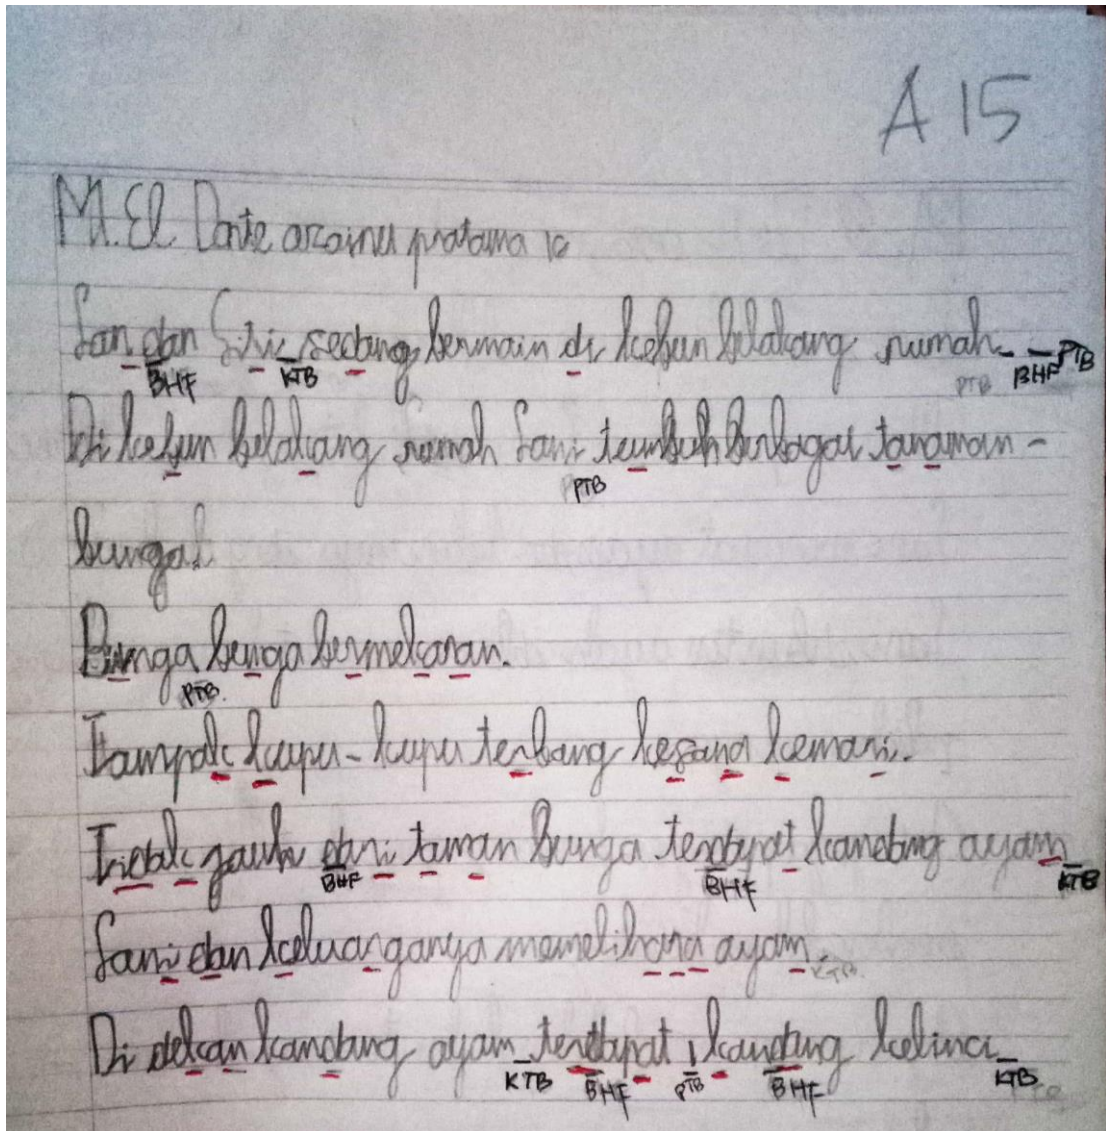 A 15
M. El Dante arainu pratama 1c
San dan Siti sedang bermain di kebun belakang rumah
BHF KTB PTB BHF PTB
Di kebun belakang rumah Sani tumbuh berbagai tanaman -
PTB
bunga.
Bunga bunga bermekaran.
PTB.
Tampak kupu-kupu terbang kesana kemari.
Tidak jauh dari taman bunga terdapat kandang ayam
BHF BHF KTB
Sani dan keluarganya memelihara ayam.
KTB.
Di dekan kandang ayam terdapat kandang kelinci
KTB BHF PTB BHF KTB